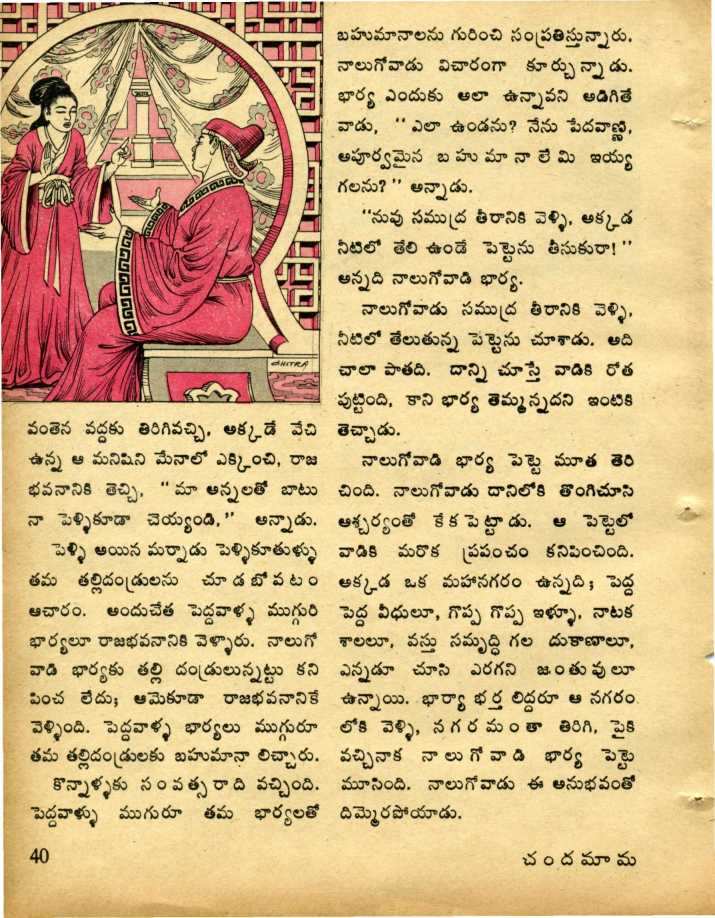 CHITRA
వంతెన వద్దకు తిరిగివచ్చి, అక్కడే వేచి
ఉన్న ఆ మనిషిని మేనాలో ఎక్కించి, రాజ
భవనానికి తెచ్చి, "మా అన్నలతో బాటు
నా పెళ్ళికూడా చెయ్యండి," అన్నాడు.
పెళ్ళి అయిన మర్నాడు పెళ్ళికూతుళ్ళు
తమ తల్లిదండ్రులను చూడబోవటం
ఆచారం. అందుచేత పెద్దవాళ్ళ ముగ్గురి
భార్యలూ రాజభవనానికి వెళ్ళారు. నాలుగో
వాడి భార్యకు తల్లి దండ్రులున్నట్టు కని
పించ లేదు; ఆమెకూడా రాజభవనానికే
వెళ్ళింది. పెద్దవాళ్ళ భార్యలు ముగ్గురూ
తమ తల్లిదండ్రులకు బహుమానా లిచ్చారు.
కొన్నాళ్ళకు సంవత్సరాది వచ్చింది.
పెద్దవాళ్ళు ముగురూ తమ భార్యలతో
బహుమానాలను గురించి సంప్రతిస్తున్నారు.
నాలుగోవాడు విచారంగా కూర్చున్నాడు.
భార్య ఎందుకు అలా ఉన్నావని అడిగితే
వాడు, "ఎలా ఉండను? నేను పేదవాణ్ణి,
అపూర్వమైన బహుమానాలేమి ఇయ్య
గలను?" అన్నాడు.
"నువు సముద్ర తీరానికి వెళ్ళి, అక్కడ
నీటిలో తేలి ఉండే పెట్టెను తీసుకురా!"
అన్నది నాలుగోవాడి భార్య.
నాలుగోవాడు సముద్ర తీరానికి వెళ్ళి,
నీటిలో తేలుతున్న పెట్టెను చూశాడు. అది
చాలా పాతది. దాన్ని చూస్తే వాడికి రోత
పుట్టింది, కాని భార్య తెమ్మన్నదని ఇంటికి
తెచ్చాడు.
నాలుగోవాడి భార్య పెట్టె మూత తెరి
చింది. నాలుగోవాడు దానిలోకి తొంగిచూసి
ఆశ్చర్యంతో కేకపెట్టాడు. ఆ పెట్టెలో
వాడికి మరొక ప్రపంచం కనిపించింది.
అక్కడ ఒక మహానగరం ఉన్నది; పెద్ద
పెద్ద వీధులూ, గొప్ప గొప్ప ఇళ్ళూ, నాటక
శాలలూ, వస్తు సమృద్ధి గల దుకాణాలూ,
ఎన్నడూ చూసి ఎరగని జంతువులూ
ఉన్నాయి. భార్యా భర్త లిద్దరూ ఆ నగరం
లోకి వెళ్ళి, నగరమంతా తిరిగి, పైకి
వచ్చినాక నాలుగోవాడి భార్య పెట్టె
మూసింది. నాలుగోవాడు ఈ అనుభవంతో
దిమ్మెరపోయాడు.
40
చందమామ